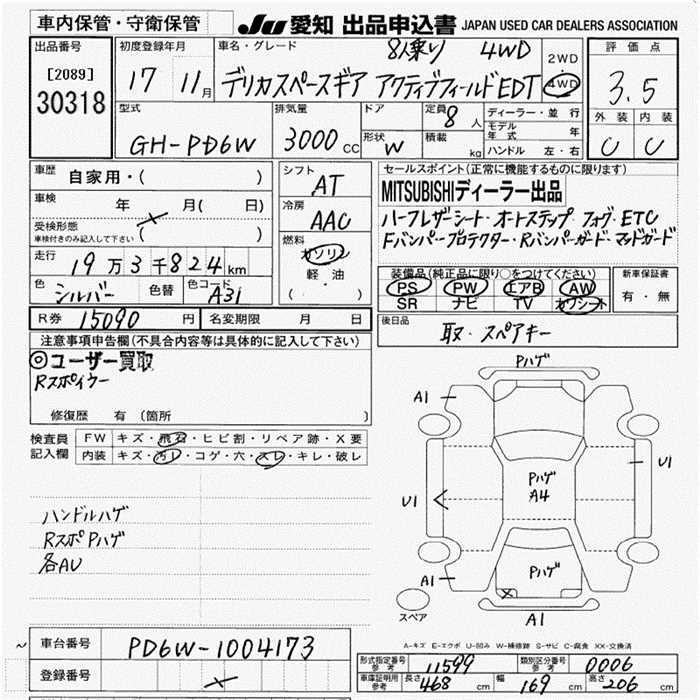 車内保管・守衛保管
JU 愛知 出品申込書 JAPAN USED CAR DEALERS ASSOCIATION
出品番号
[2089]
30318
初度登録年月
17 11月
車名・グレード
8人乗り 4WD
デリカスペースギア アクティブフィールドEDT
2WD
4WD
評価点
3.5
外装 内装
C C
型式
GH-PD6W
排気量
3000 CC
ドア
形状 W
定員 8 人
積載 kg
ディーラー・並行
モデル年式 年
ハンドル 左・右
車歴 自家用・( )
車検 年 月( 日)
受検形態 ( )
車検付きのみ記入して下さい
走行 19万3千824km
色 シルバー 色替 色コード A31
シフト AT
冷房 AAC
燃料
ガソリン
軽・油
( )
セールスポイント(正常に機能するものに限ります)
MITSUBISHIディーラー出品
ハーフレザーシート・オートステップ・フォグ・ETC
Fバンパープロテクター・Rバンパーガード・マッドガード
装備品(純正品に限り○をつけてください)
PS PW エアB AW
SR ナビ TV カワシート
新車保証書
有・無
R券 15090 円 名変期限 月 日
後日品
取・スペアキー
注意事項申告欄(不具合内容等は具体的に記入して下さい)
◎ユーザー買取
Rスポイラー
修復歴 有(箇所 )
検査員記入欄
FW キズ・飛石・ヒビ割・リペア跡・X要
内装 キズ・汚レ・コゲ・穴・スレ・キレ・破レ
ハンドルハゲ
RスポPハゲ
各AU
Pハゲ
A1
U1
Pハゲ
A4
U1
Pハゲ
A1
A1
スペア
A-キズ E-エクボ U-凹み W-補修跡 S-サビ C-腐食 XX-交換済
車台番号 PD6W-1004173
登録番号
形式指定番号 参考 11599 類別区分番号 参考 0006
車庫証明用 参考 長さ 468 cm 幅 169 cm 高さ 206 cm